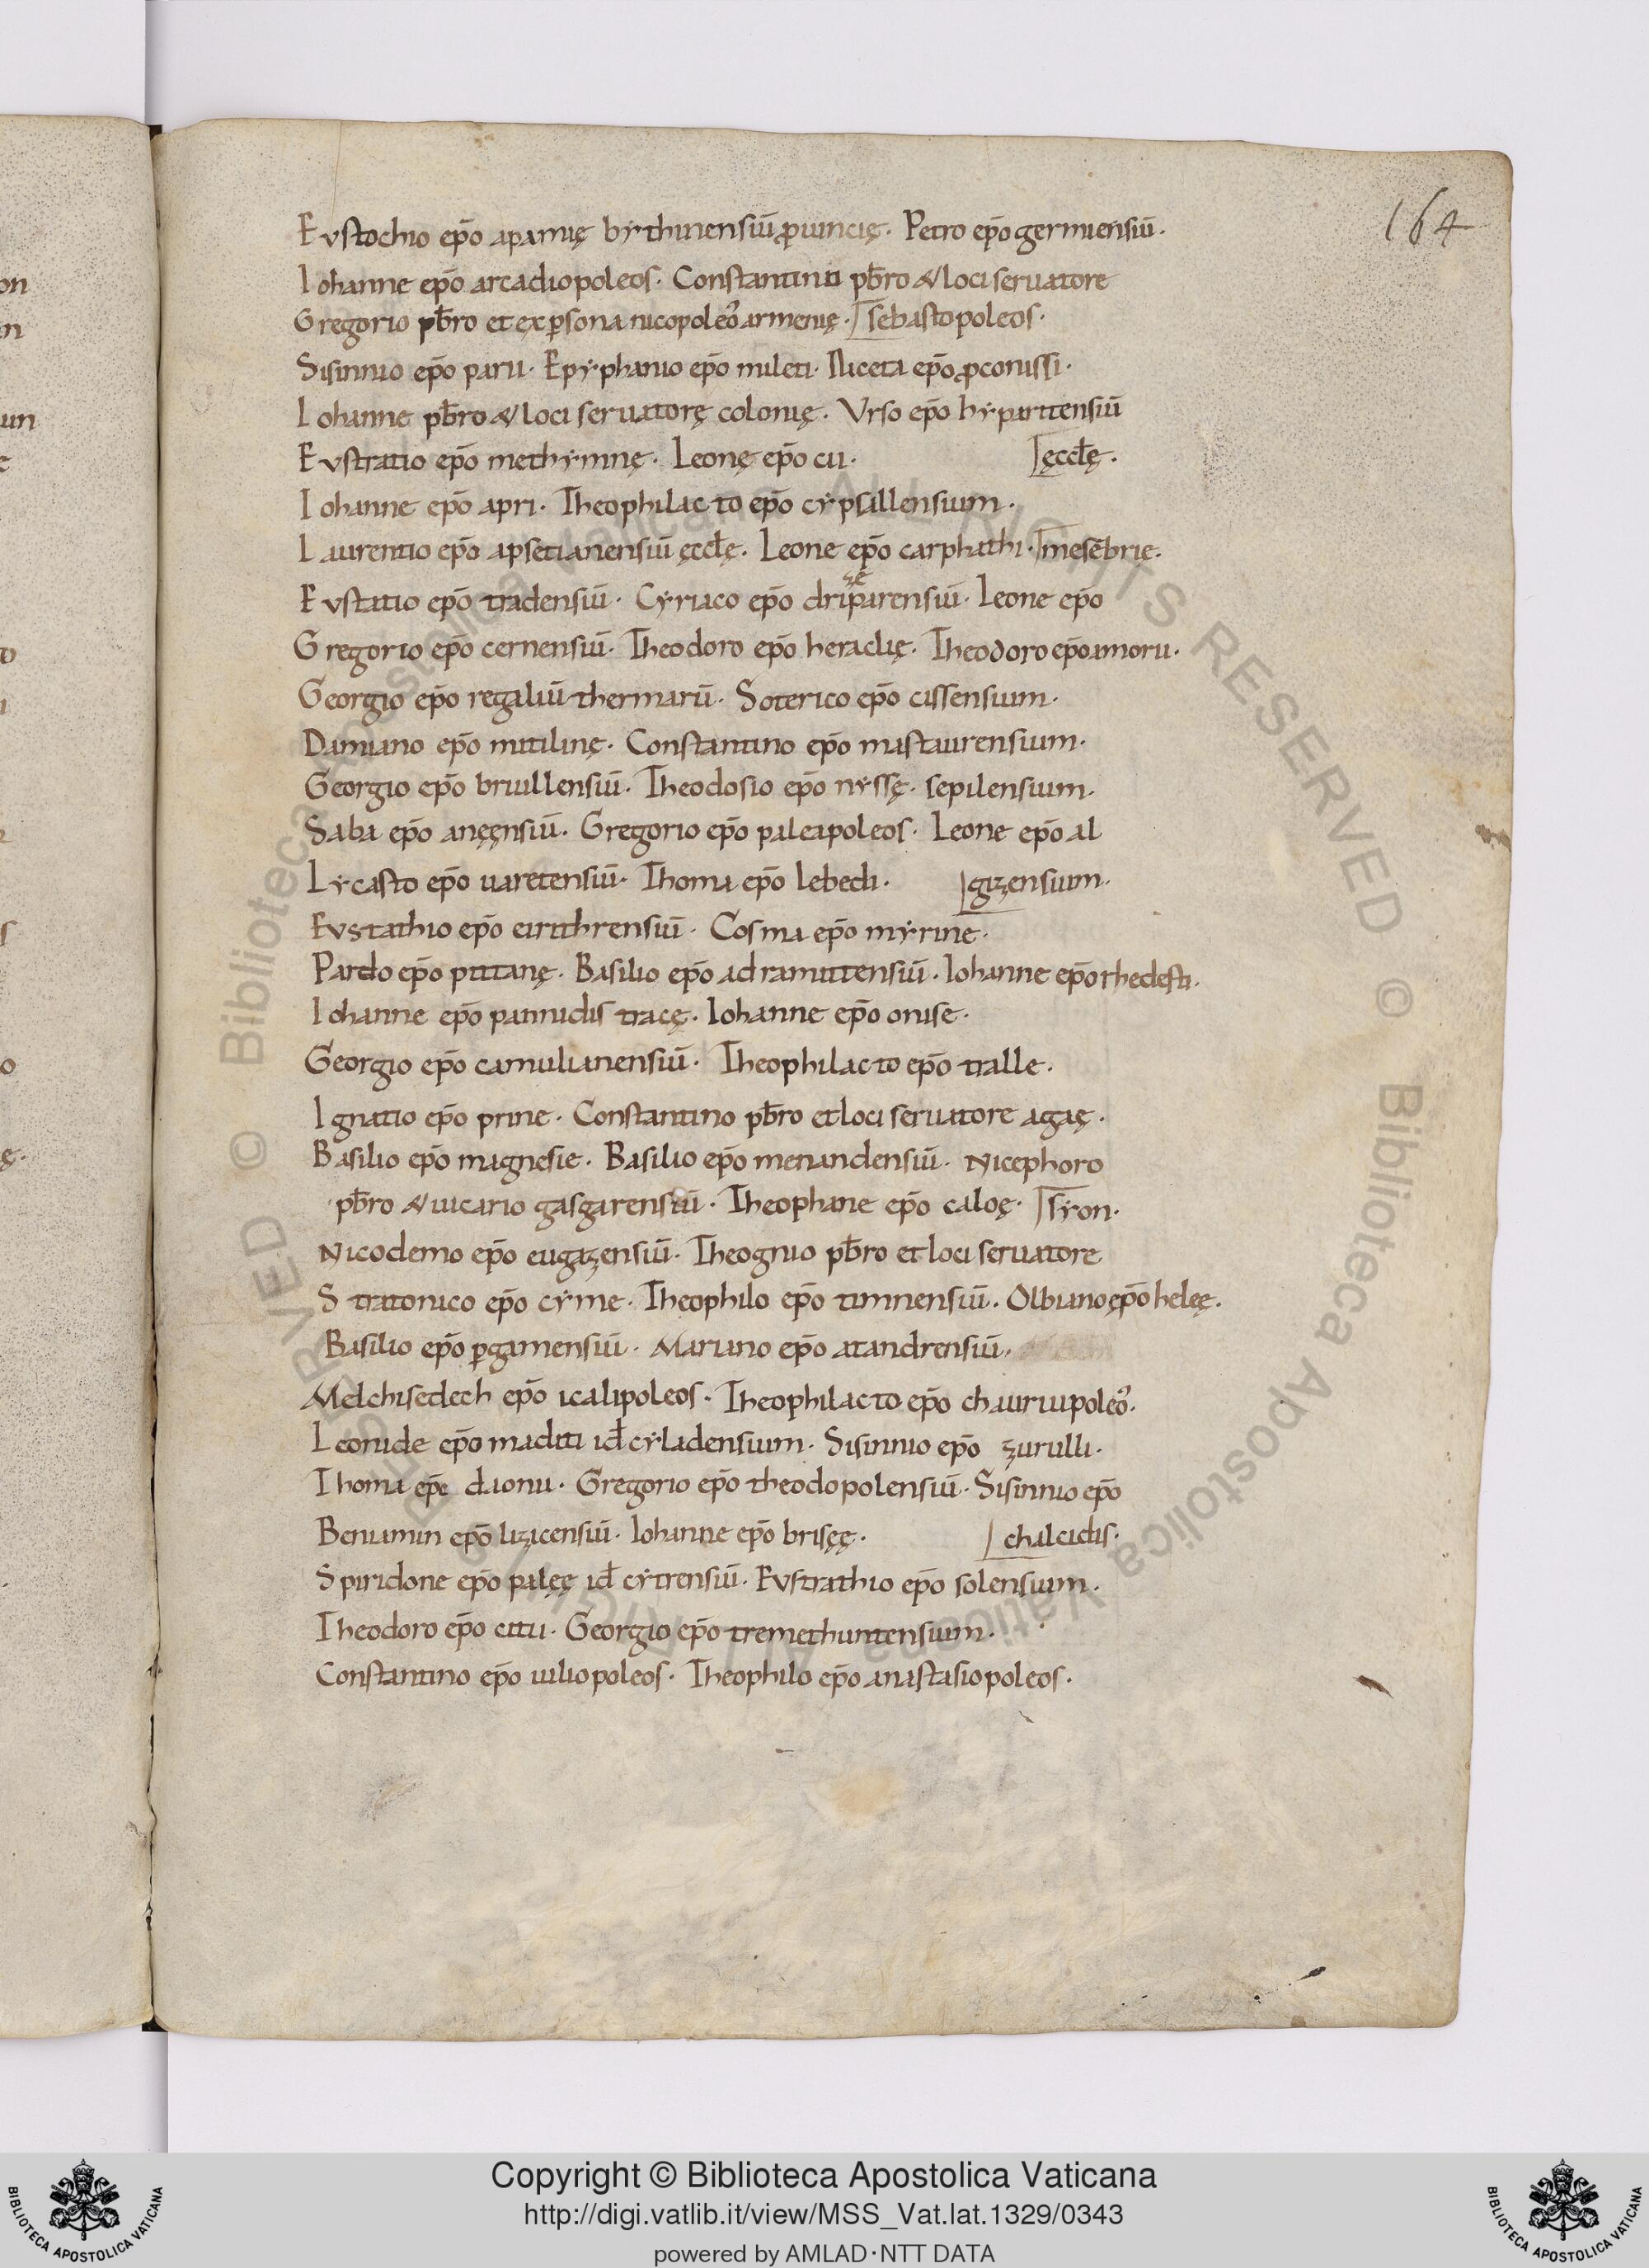 164
Eustochio ep̄o apamię bythinensiū ꝓuincię. Petro ep̄o germiensiū.
Iohanne ep̄o arcadiopoleos. Constantino pb̄ro & loci seruatore
Gregorio pb̄ro et ex ꝑsona nicopoleo᷒ armenię. sebastopoleos.
Sisinnio ep̄o parii. Epyphanio ep̄o mileti. Niceta ep̄o ꝓconissi.
Iohanne pb̄ro & loci seruatorę colonię. Urso ep̄o hyparitensiū
Eustratio ep̄o methymnę. Leonę ep̄o cii. ęccłę.
Iohanne ep̄o apri. Theophilacto ep̄o cypsillensium.
Laurentio ep̄o apsetianensiū ęccłę. Leone ep̄o carphathi. mesēbrie.
Eustatio ep̄o tradensiū. Cyriaco ep̄o driparensiū. Leone ep̄o
Gregorio ep̄o cernensiū. Theodoro ep̄o heraclię. Theodoro ep̄o amorii.
Georgio ep̄o regaliū thermarū. Soterico ep̄o cissensium.
Damiano ep̄o mitilinę. Constantino ep̄o mastaurensium.
Georgio ep̄o briullensiū. Theodosio ep̄o nyssę. sepilensium.
Saba ep̄o anęęnsiū. Gregorio ep̄o paleapoleos. Leone ep̄o al
Lycasto ep̄o uaretensiū. Thoma ep̄o lebedi. gizensium.
Eustathio ep̄o eirithrensiū. Cosma ep̄o myrine.
Pardo ep̄o pittanę. Basilio ep̄o adramittensiū. Iohanne ep̄o rhedesti.
Iohanne ep̄o pannidis tracę. Iohanne ep̄o onise.
Georgio ep̄o camulianensiū. Theophilacto ep̄o tralle.
Ignatio ep̄o prine. Constantino pb̄ro et loci seruatore agaę.
Basilio ep̄o magnesie. Basilio ep̄o menandensiū. Nicephoro
pb̄ro & uicario gasgarensiū. Theophane ep̄o caloę. syon.
Nicodemo ep̄o eugazensiū. Theognio pb̄ro et loci seruatore
Stratonico ep̄o cyme. Theophilo ep̄o timnensiū. Olbiano ęp̄o heleę.
Basilio ep̄o ꝑgamensiū. Mariano ep̄o atandrensiū.
Melchisedech ep̄o icalipoleos. Theophilacto ep̄o chauriupoleo᷒.
Leonide ep̄o maditi id̄ cyladensium. Sisinnio ep̄o zurulli.
Thoma ep̄e daonii. Gregorio ep̄o theodopolensiū. Sisinnio ep̄o
Beniamin ep̄o lizicensiū. Iohanne ep̄o brisęę. chalcidis.
Spiridone ep̄o palęę id̄ cytrensiū. Eustrathio ep̄o solensium.
Theodoro ep̄o citii. Georgio ep̄o tremethuntensium.
Constantino ep̄o iuliopoleos. Theophilo ep̄o anastasiopoleos.
Copyright © Biblioteca Apostolica Vaticana
http://digi.vatlib.it/view/MSS_Vat.lat.1329/0343
powered by AMLAD·NTT DATA
BIBLIOTECA APOSTOLICA VATICANA
BIBLIOTECA APOSTOLICA VATICANA